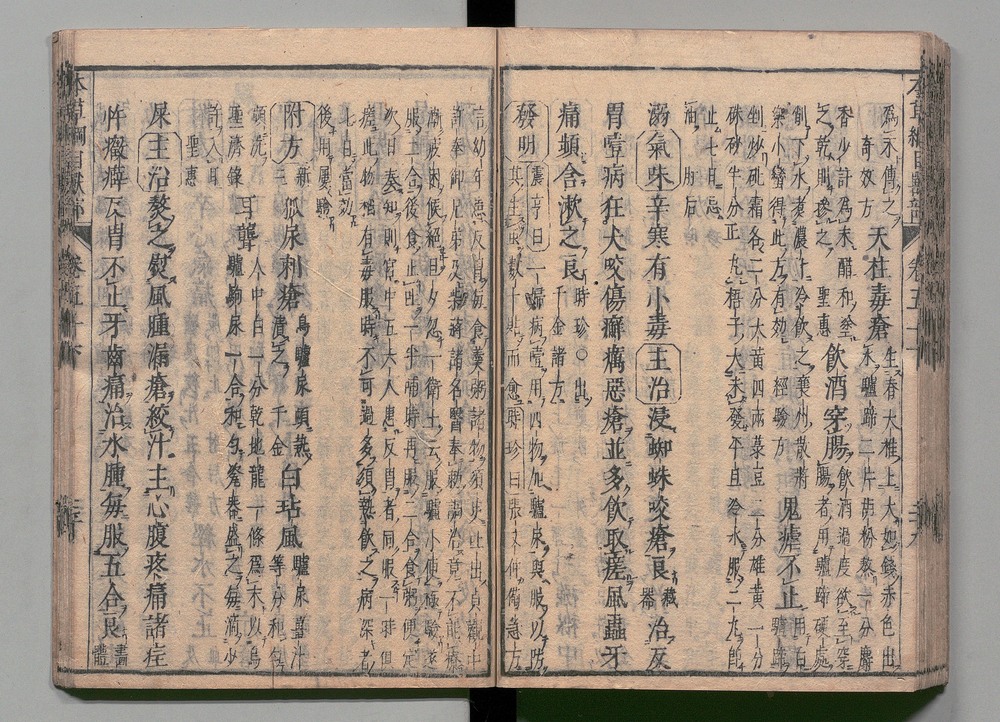 為永傅之
奇效方 天柱毒瘡 生脊大椎上大如錢赤色出水驢蹄二片胡粉熬一分麝
香少許為末醋和塗之乾則摻之 聖惠 飲酒穿腸 飲酒過度欲至穿腸者用驢蹄硬處
削下水煮濃汁冷飲之襄州散將樂小蠻得此方有效 經驗方 鬼瘧不止 用白驢蹄
剉炒砒霜各二分大黃四兩綠豆三分雄黃一分
硃砂半分 丸梧子大未發平旦冷水服二丸即
止七日忌油 肘后
溺 氣味 辛寒有小毒 主治 浸蜘蛛咬瘡良 藏器 治反
胃噎病狂犬咬傷癬癘惡瘡並多飲取瘥風蟲牙
痛頻含漱之良 時珍〇出千金諸方
發明 震亨曰一婦病噎用四物加驢尿與服以防
其生蟲數十帖而愈時珍曰張文仲備急方
言幼年患反胃每食羹粥諸物須臾吐出貞觀中
許奉御兄弟及柴蔣諸名醫奉敕調治竟不能療
漸疲困候絕旦夕忽一衛士云服驢小便極驗遂
服二合後食止吐一半晡時再服二合食粥便定
次日奏知則宮中五六人患反胃者同服一時俱
瘥此物稍有毒服時不可過多須熱飲之病深者
七日當效後用屢驗
附方 新三 狐尿刺瘡 烏驢尿頓熱漬之 千金 白玷風 驢尿薑汁等分和勻
頻洗 耳聾 人中白一分乾地龍一條為末以烏
驢駒尿一合和勻瓷器盛之每滴少
許入耳 聖惠
屎 主治 熬之熨風腫漏瘡絞汁主心腹疼痛諸疰
忤癥癖反胃不止牙齒痛治水腫每服五合良 畫體